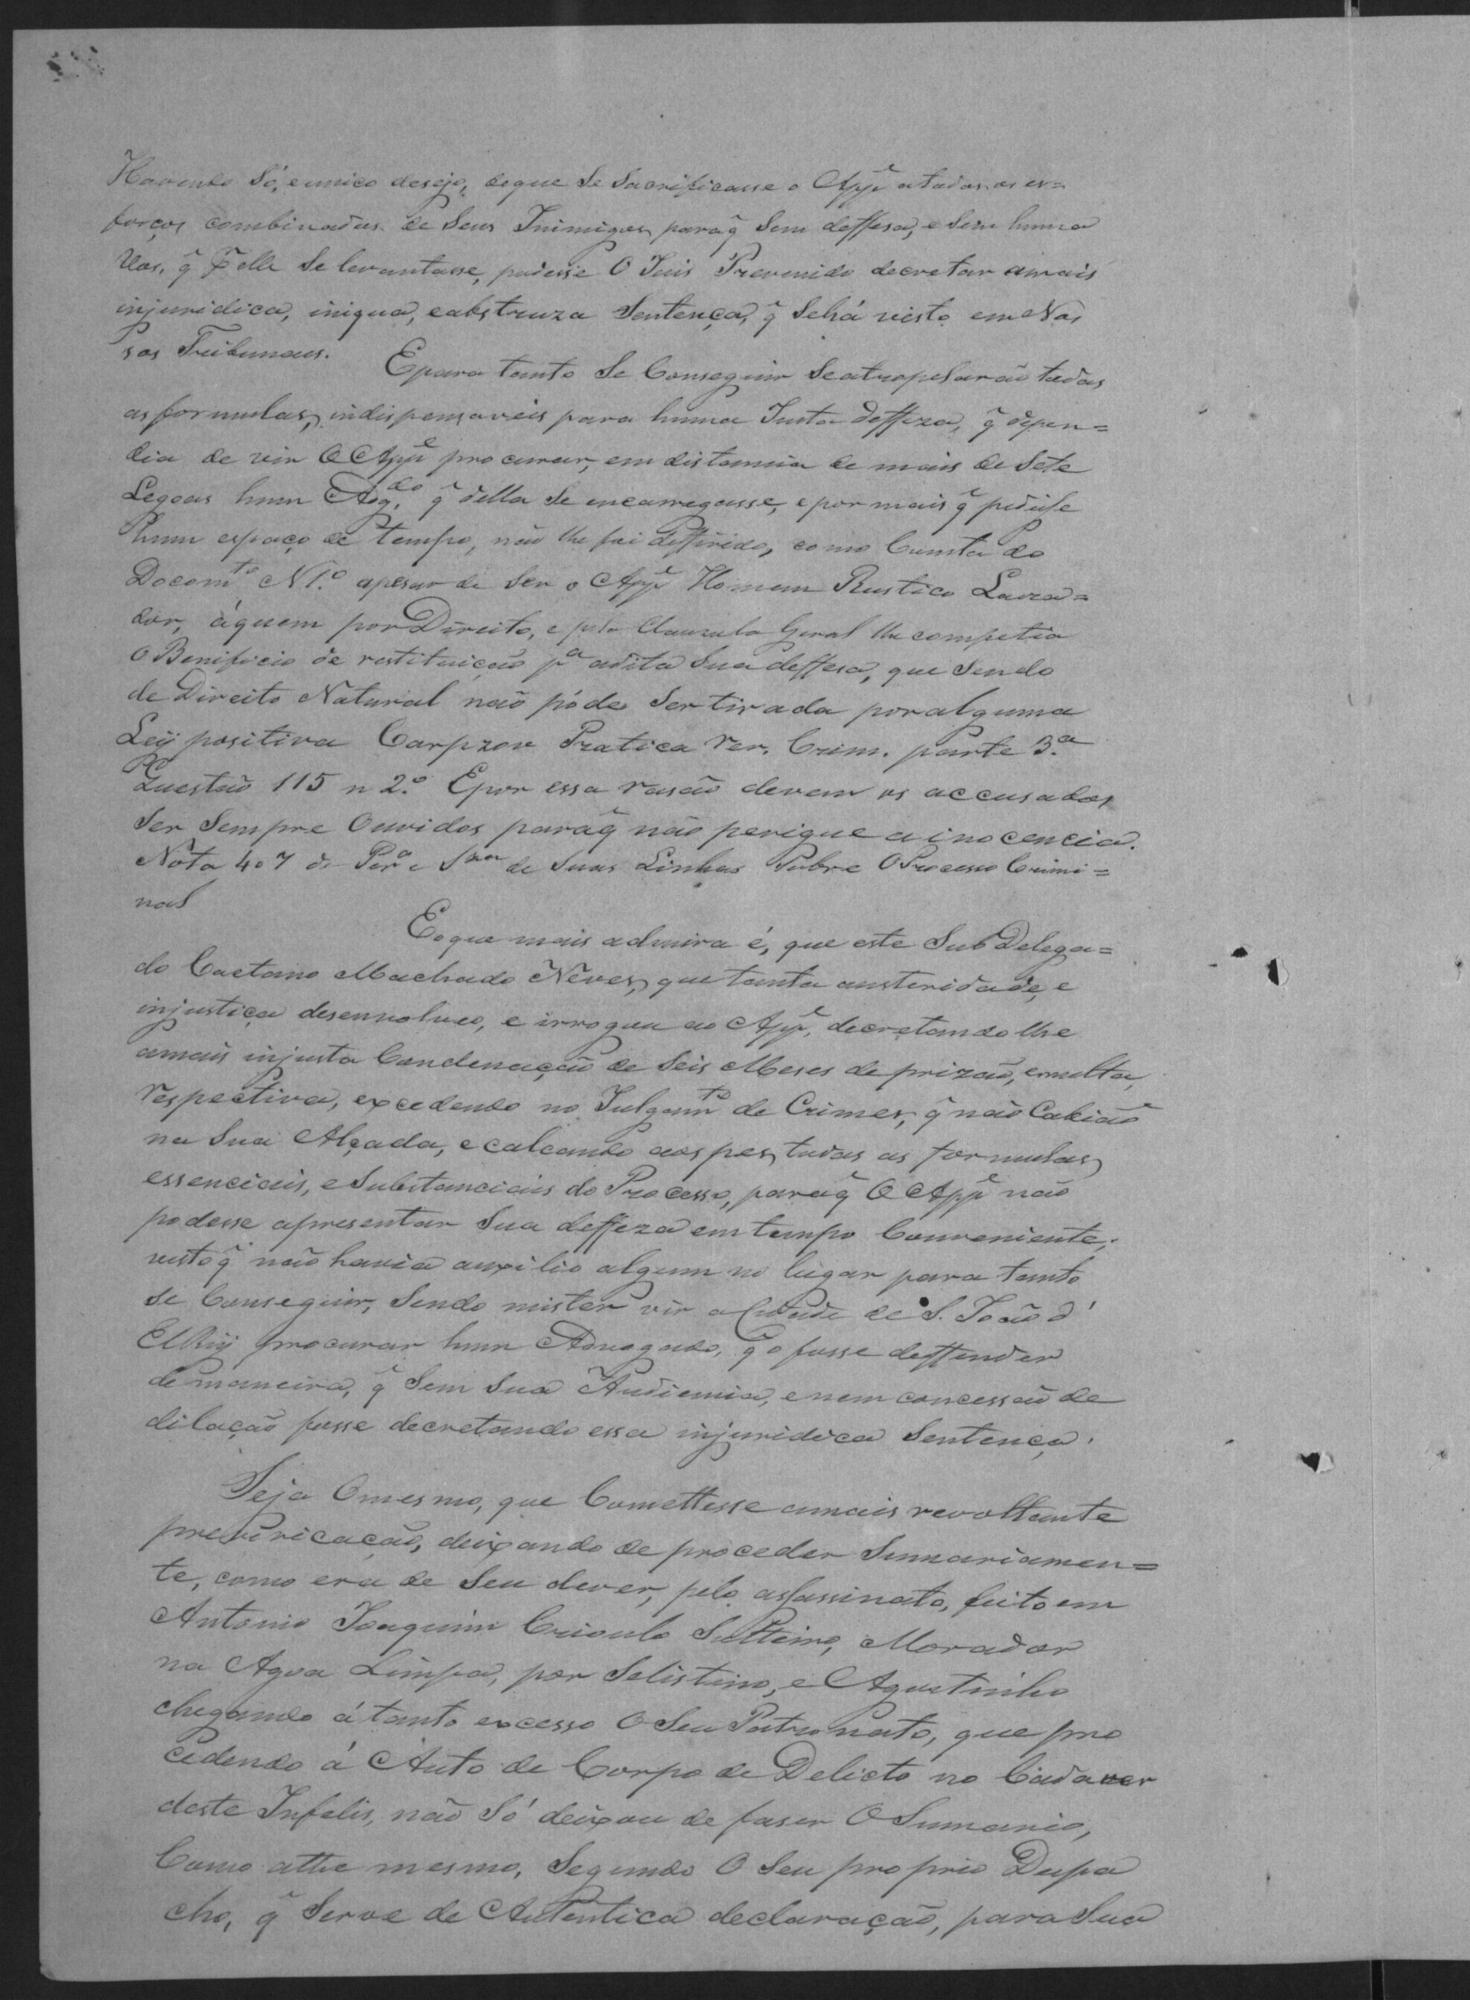 Havendo Só, e unico desejo, deque Se Sacrificasse o App.e atodos os es=
forços combinados de Seus Inimigos, paraq̃ Sem deffesa, e Sem huma
Vos, q̃ p̃ elle Se levantasse, pudesse O Juis Prevenido decretar amais
injuridica, iniqua, eabstruza Sentença, q̃ Sehá visto em Nos
sos Tribunaes.
Epara tanto Se Conseguir Seatropelarão todas
as formulas, indispensaveis para huma Justa deffeza, q̃ depen=
dia de vir O App.e procurar, em distancia de mais de Sete
Legoas hum Adg.do q̃ della Se encarregasse, e por mais q̃ pedisse
hum espaço de tempo, não lhe foi defferido, como Consta do
Docom.to N 1.º apesar de Ser o App.e Homem Rustico Lavra=
dor, áquem por Direito, e pela Clausula Geral lhe competia
O Benificio de restituição p.a adita Sua deffesa, que Sendo
de Direito Natural não póde Ser tirada por alguma
Ley positiva Carpzov Pratica rer. Crim. parte 3.a
Questão 115 n 2.º Epor essa rasão devem os accusados
Ser Sempre Ouvidos paraq̃ não perigue a inocencia.
Nota 407 de Per.a e Sza de Suas Linhas Sobre O Processo Crimi=
nal
Eoque mais admira é, que este Sub Delega=
do Caetano Machado Neves, que tanta austeridade, e
injustiça desenvolveo, e irrogou ao App.e, decretando lhe
amais injusta Condenação de Seis Meses de prizão, emulta,
respectiva, excedendo no Julgam.to de Crimes, q̃ não Cabião
na Sua Alçada, e calcando aos pes todas as formulas
essenciais, e Substanciais do Processo, paraq̃ O App.e não
podesse apresentar Sua deffeza em tempo Conveniente;
visto q̃ não havia auxilio algum no lugar para tanto
Se Conseguir, Sendo mister vir a Cidade de S. João d'
El Rey procurar hum Advogado, q̃ o fosse deffender
de maneira, q̃ Sem Sua Audiencia, e nem concessão de
dilação fosse decretando essa injuridica Sentença.
Seja Omesmo, que Comettesse amais revoltante
previricação, deixando de proceder Sumariamen=
te, como era de Seu dever, pelo assassinato, feito em
Antonio Joaquim Crioulo Solteiro, Morador
na Agoa Limpa, por Selistino, e Agostinho
chegando á tanto excesso O Seu Patronato, que pro
cedendo á Auto de Corpo de Delicto no Cadaver
deste Infelis, não Só deixou de faser O Sumario,
Como athe mesmo, Segundo O Seu proprio Despa
cho, q̃ Serve de Autentica declaração, para Sua